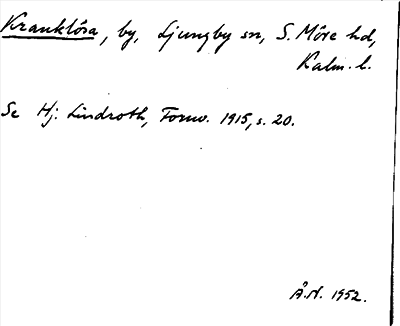 Kranklösa, by, Ljungby sn, S. Möre hd,
Kalm. l.
Se Hj. Lindroth, Fornv. 1915, s. 20.
Å.N. 1952.